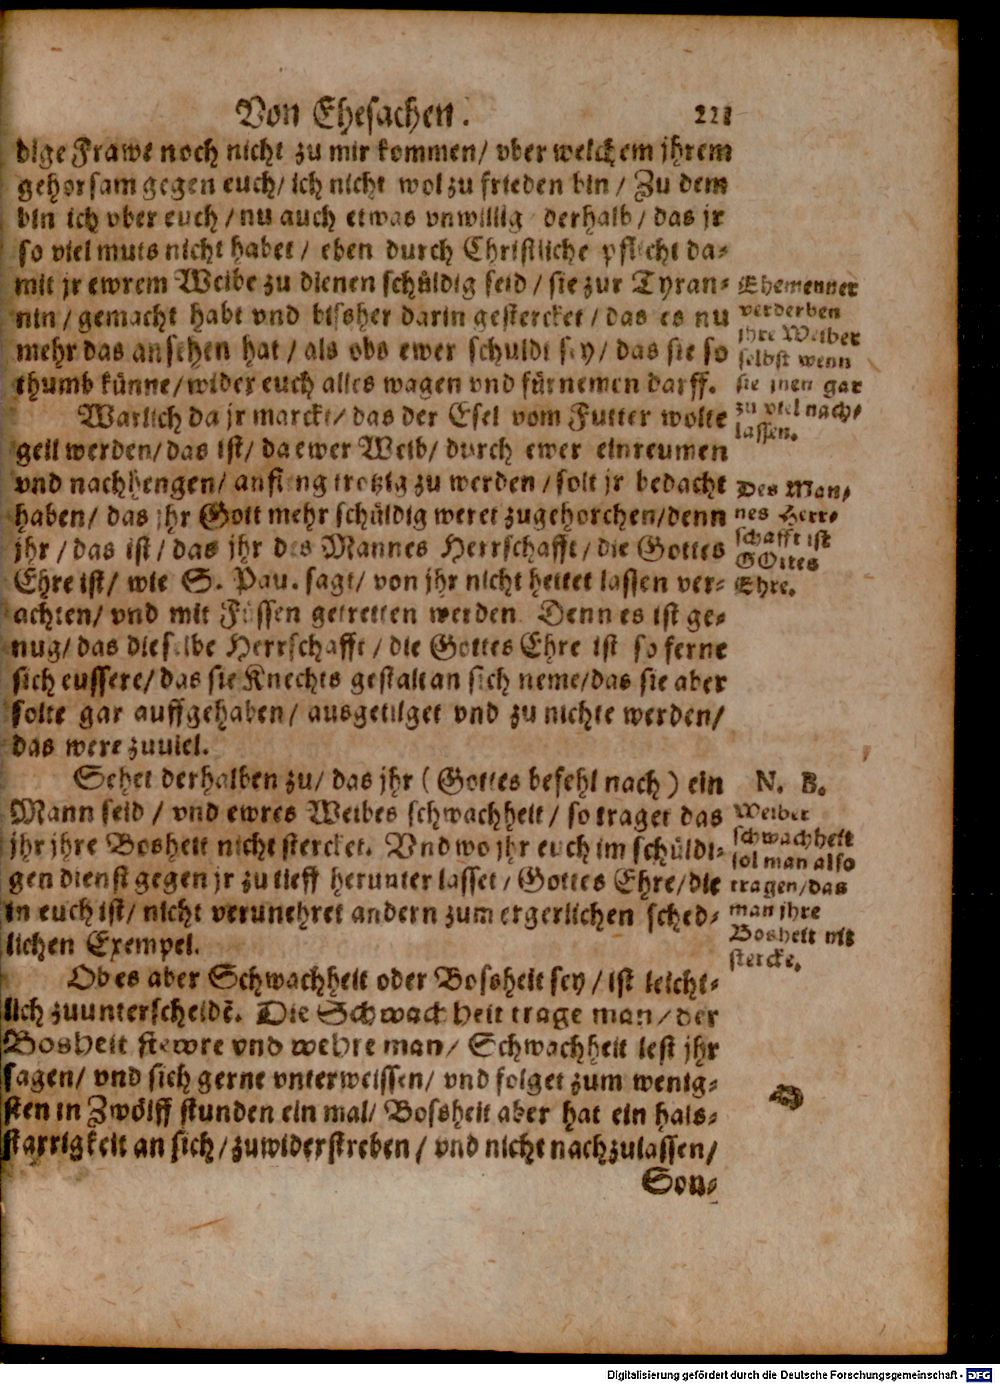 Von Ehesachen. 221
dige Frawe noch nicht zu mir kommen/ vber welchem jhrem
gehorsam gegen euch/ ich nicht wol zu frieden bin/ Zu dem
bin ich vber euch/ nu auch etwas vnwillig derhalb/ das jr
so viel muts nicht habet/ eben durch Christliche pflicht da-
mit jr ewrem Weibe zu dienen schüldig seid/ sie zur Tyran-
nin/ gemacht habt vnd bissher darin gestercket/ das es nu
mehr das ansehen hat/ als obs ewer schuldt sey/ das sie so
thumb künne/ wider euch alles wagen vnd fürnemen darff.
Warlich da jr marckt/ das der Esel vom Futter wolte
geil werden/ das ist/ da ewer Weib/ durch ewer einreumen
vnd nachhengen/ anfieng trotzig zu werden/ solt jr bedacht
haben/ das jhr Gott mehr schüldig weret zugehorchen/ denn
jhr/ das ist/ das jhr des Mannes Herrschafft/ die Gottes
Ehre ist/ wie S. Pau. sagt/ von jhr nicht hettet lassen ver-
achten/ vnd mit Füssen getretten werden Denn es ist ge-
nug/ das dieselbe Herrschafft/ die Gottes Ehre ist so ferne
sich eussere/ das sie Knechts gestalt an sich neme/ das sie aber
solte gar auffgehaben/ ausgetilget vnd zu nichte werden/
das were zuuiel.
Sehet derhalben zu/ das jhr (Gottes befehl nach) ein
Mann seid/ vnd ewres Weibes schwachheit/ so traget das
jhr jhre Bosheit nicht stercket. Vnd wo jhr euch im schüldi-
gen dienst gegen jr zu tieff herunter lasset/ Gottes Ehre/ die
in euch ist/ nicht verunehret andern zum ergerlichen sched-
lichen Exempel.
Ob es aber Schwachheit oder Bossheit sey/ ist leicht-
lich zuunterscheidē. Die Schwachheit trage man/ der
Bosheit stewre vnd wehre man/ Schwachheit lest jhr
sagen/ vnd sich gerne vnterweissen/ vnd folget zum wenig-
sten in Zwölff stunden ein mal/ Bossheit aber hat ein hals-
starrigkeit an sich/ zuwiderstreben/ vnd nicht nachzulassen/
Son-
Ehemenner
verderben
jhre Weiber
selbst wenn
sie jnen gar
zu viel nach-
lassen.
Des Man-
nes Herr-
schafft ist
GOttes
Ehre.
N. B.
Weiber
schwachheit
sol man also
tragen/ das
man jhre
Bosheit nit
stercke.
Digitalisierung gefördert durch die Deutsche Forschungsgemeinschaft - DFG